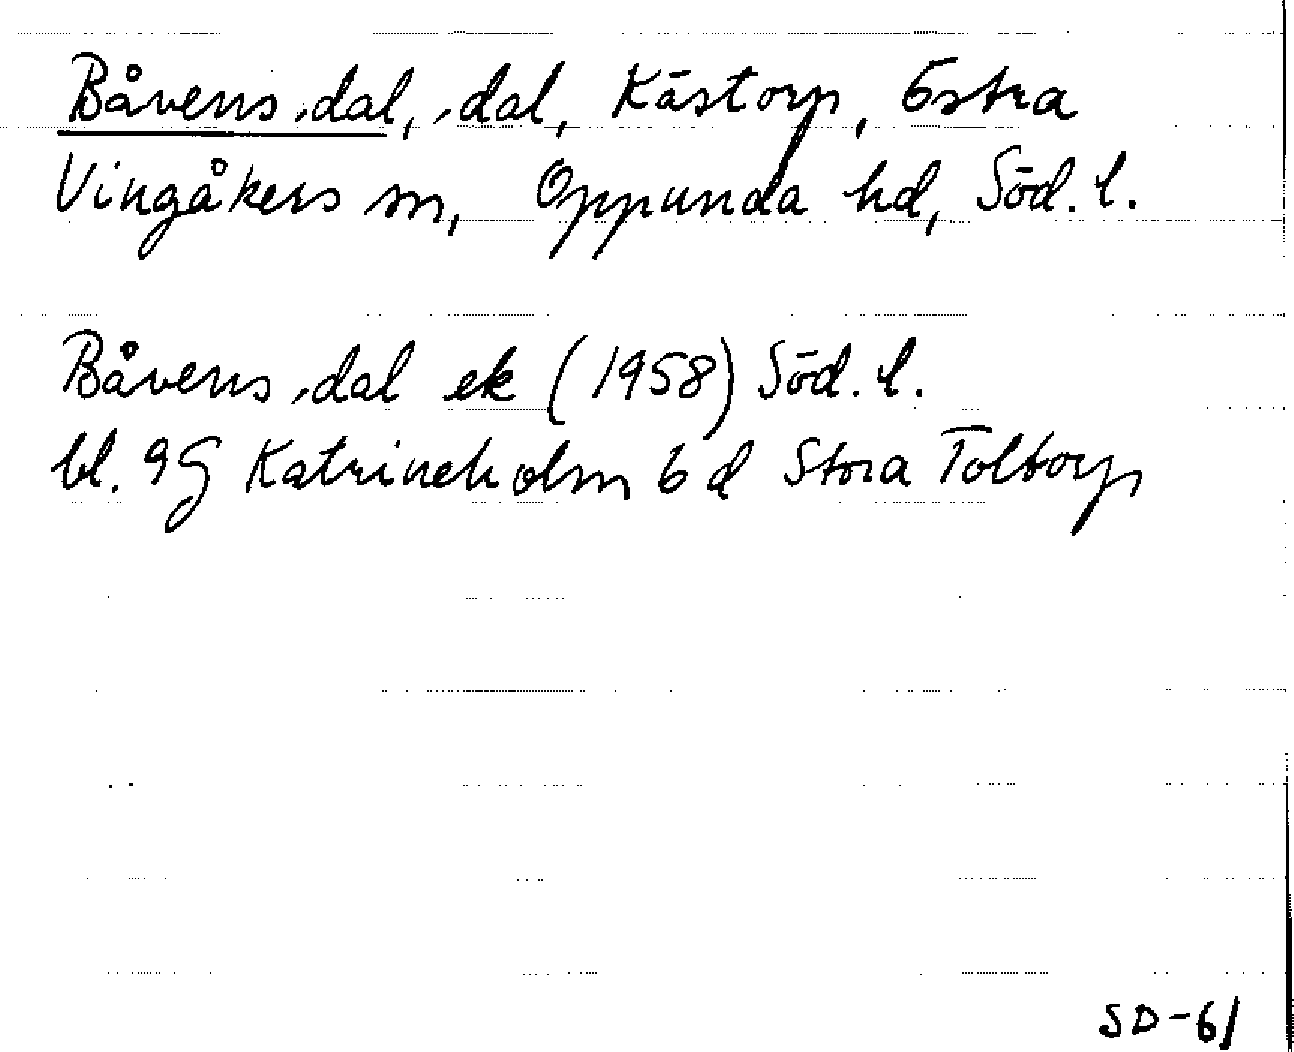 Båvens dal, dal, Kästorp, Östra
Vingåkers sn, Oppunda hd, Söd. l.
Båvens dal ek (1958) Söd. l.
bl. 9G Katrineholm 6 d Stora Toltorp
SD-61